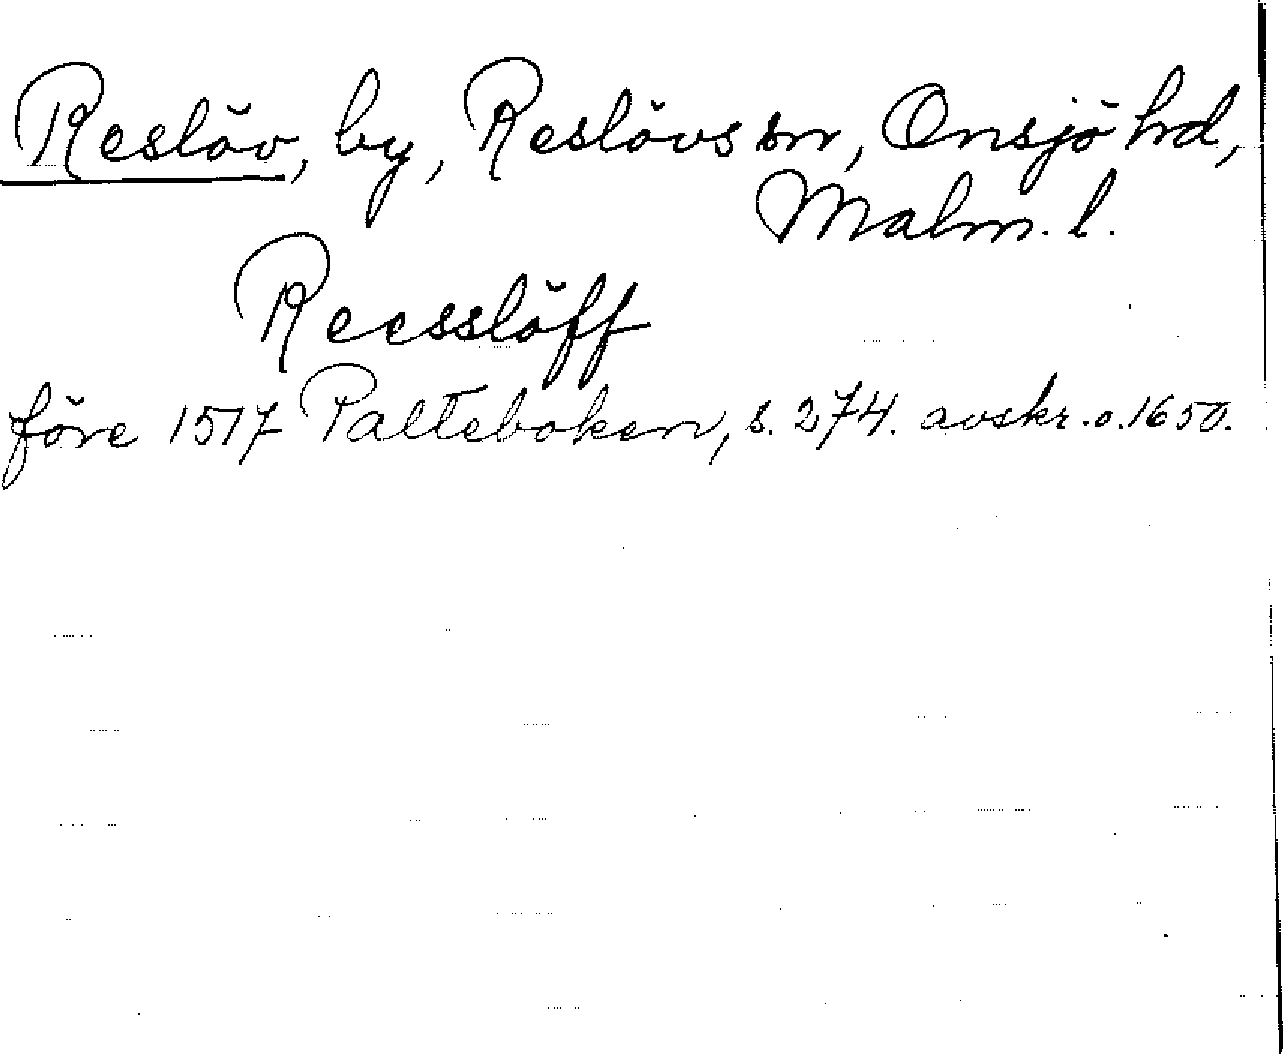 Reslöv, by, Reslövs sn, Onsjö hd,
Malm. l.
Reesslöff
före 1517 Palteboken, s. 274. avskr. o. 1650.